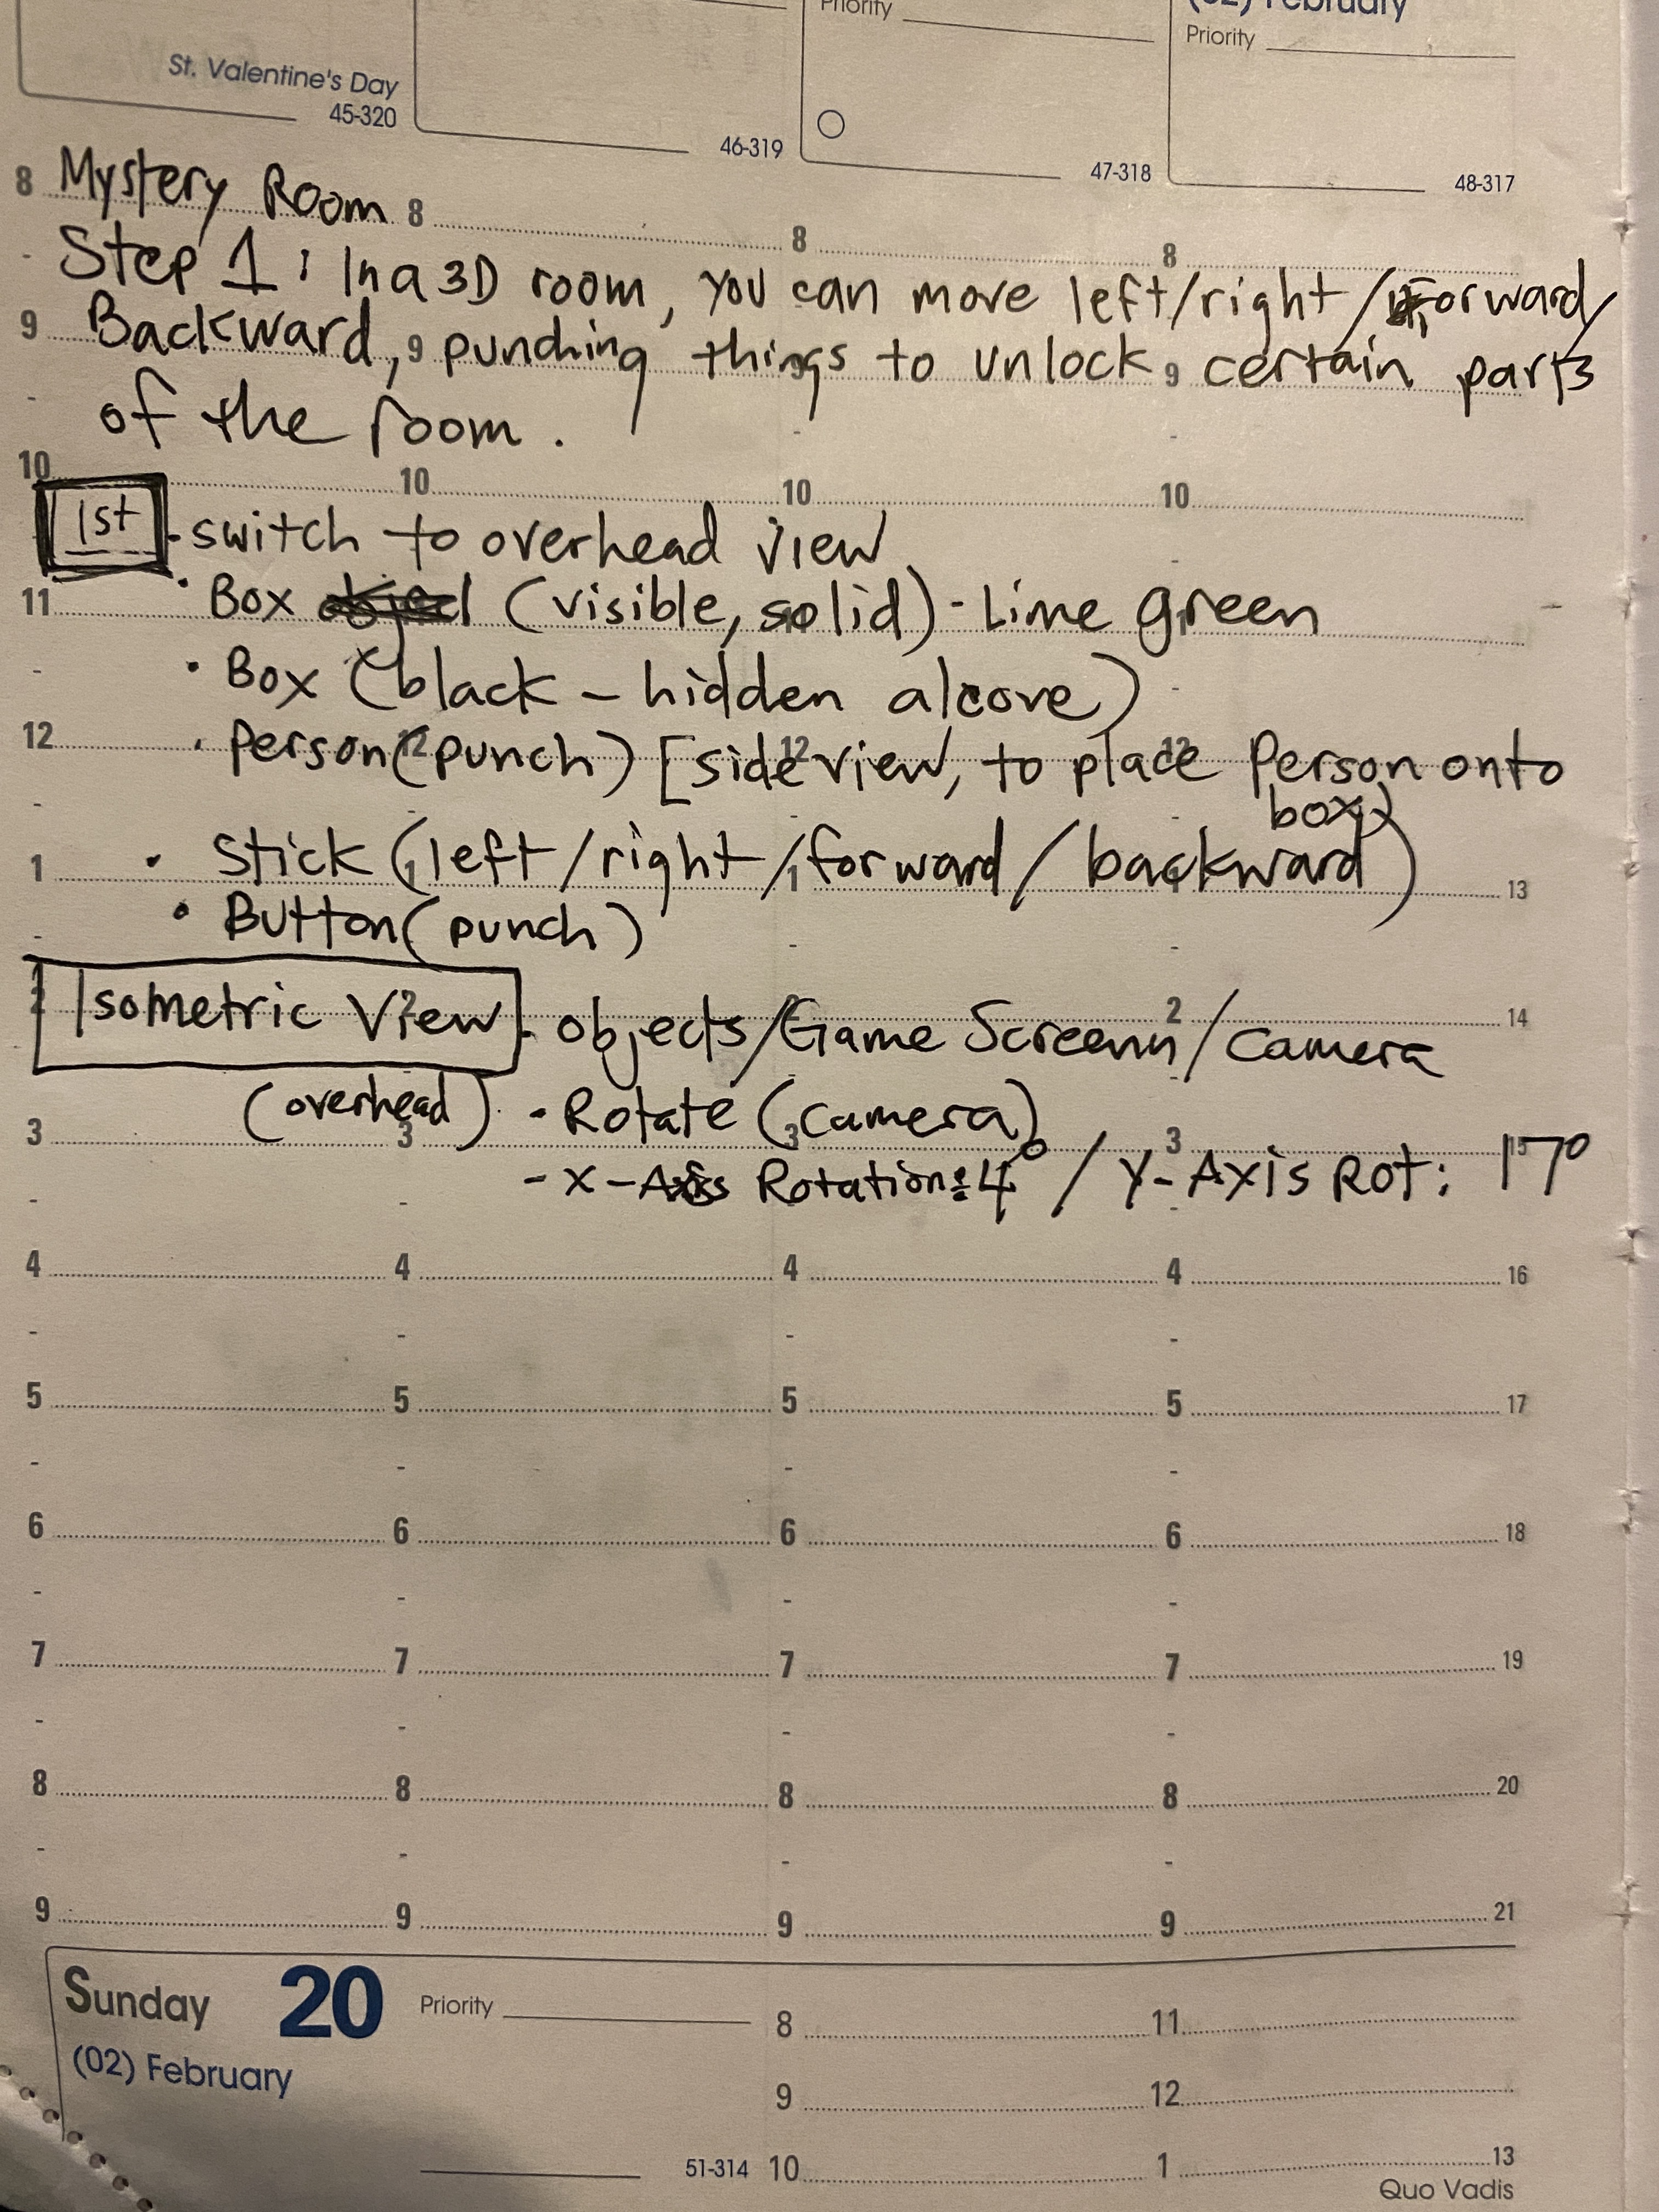 Priority
(02) February
Priority
St. Valentine's Day
45-320
46-319
47-318
48-317
8 Mystery Room 8
8 8
Step 1: In a 3D room, you can move left/right/forward/
9 Backward, 9 punching things to unlock 9 certain parts
of the room.
10 10 10 10
1st - switch to overhead view
11 • Box (visible, solid) - Lime green
• Box (black - hidden alcove)
12 • Person (punch) [side view, to place Person onto
box)
1 • Stick (left/right/forward/backward) 13
• Button (punch)
2 Isometric View - objects/Game Screen/Camera 2 14
(overhead) • Rotate (camera)
3 3 3 3 15
- X-Axis Rotation: 4° / Y-Axis Rot: 17°
4 4 4 4 16
5 5 5 5 17
6 6 6 6 18
7 7 7 7 19
8 8 8 8 20
9 9 9 9 21
Sunday 20 Priority 8 11
(02) February
9 12
51-314 10 1 13
Quo Vadis